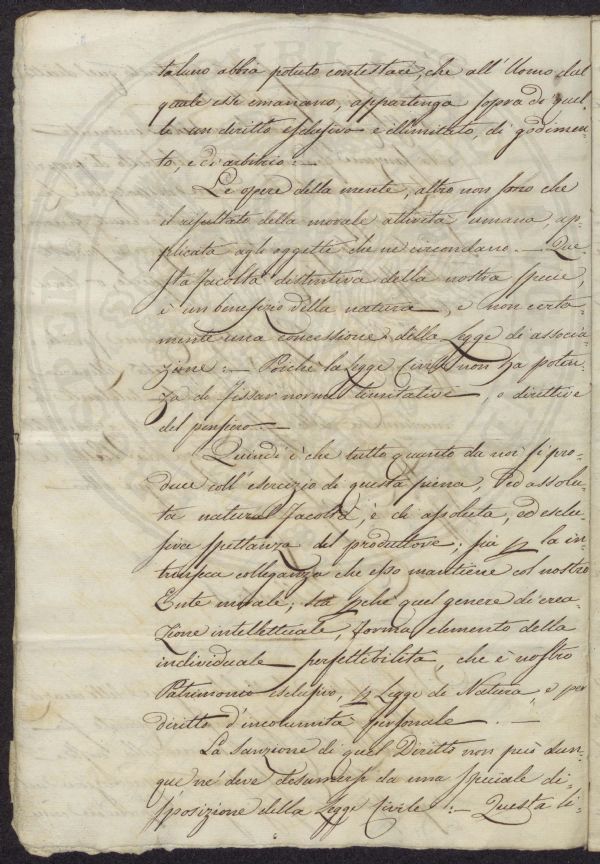 taluno abbia potuto contestare, che all'Uomo dal
quale esse emanano, appartenga sopra di quel-
le un diritto esclusivo e illimitato, di godimen-
to, e di arbitrio. —
Le opere della mente, altro non sono che
il risultato della morale attività umana, ap-
plicata agli oggetti che ne circondano. — Que-
sta facoltà distintiva della nostra specie,
è un benefizio della natura, e non certa-
mente una concessione della Legge di associa-
zione: — Poiché la Legge Civile non ha poten-
za di fissar norme limitative, o direttive
del pensiero. —
Quindi è che tutto quanto da noi si pro-
duce coll'esercizio di questa piena, ed assolu-
ta natural facoltà, è di assoluta, ed esclu-
siva spettanza del produttore; sia p la in-
trinseca colleganza che esso mantiene col nostro
Ente morale; sia pchè quel genere di crea-
zione intellettuale, forma elemento della
individuale perfettibilità, che è nostro
Patrimonio esclusivo, p Legge di Natura, e per
diritto d'incolumità personale. —
La sanzione di quel Diritto non può dun-
que nè deve desumersi da una speciale di-
sposizione della Legge Civile: — Questa li-